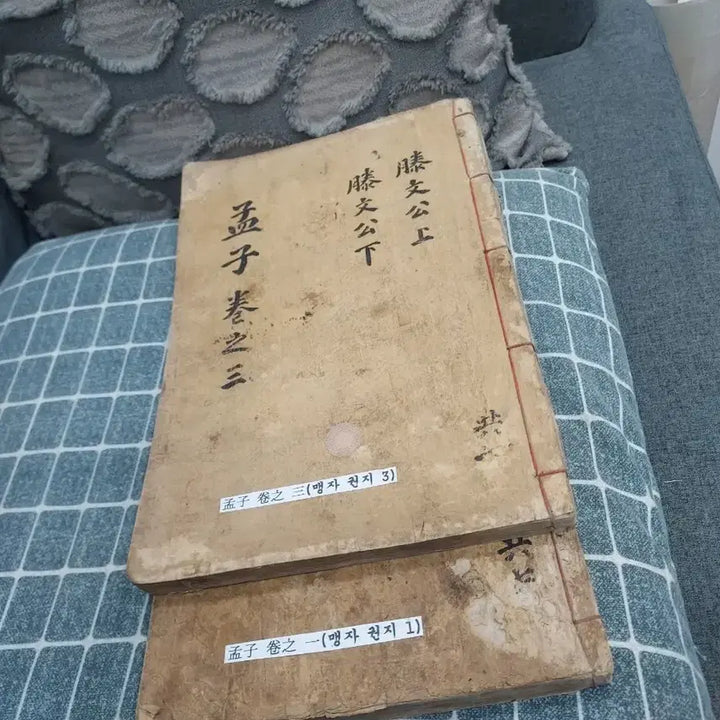 滕文公上
滕文公下
孟子 卷之三
孟子 卷之 三(맹자 권지 3)
孟子 卷之 一(맹자 권지 1)